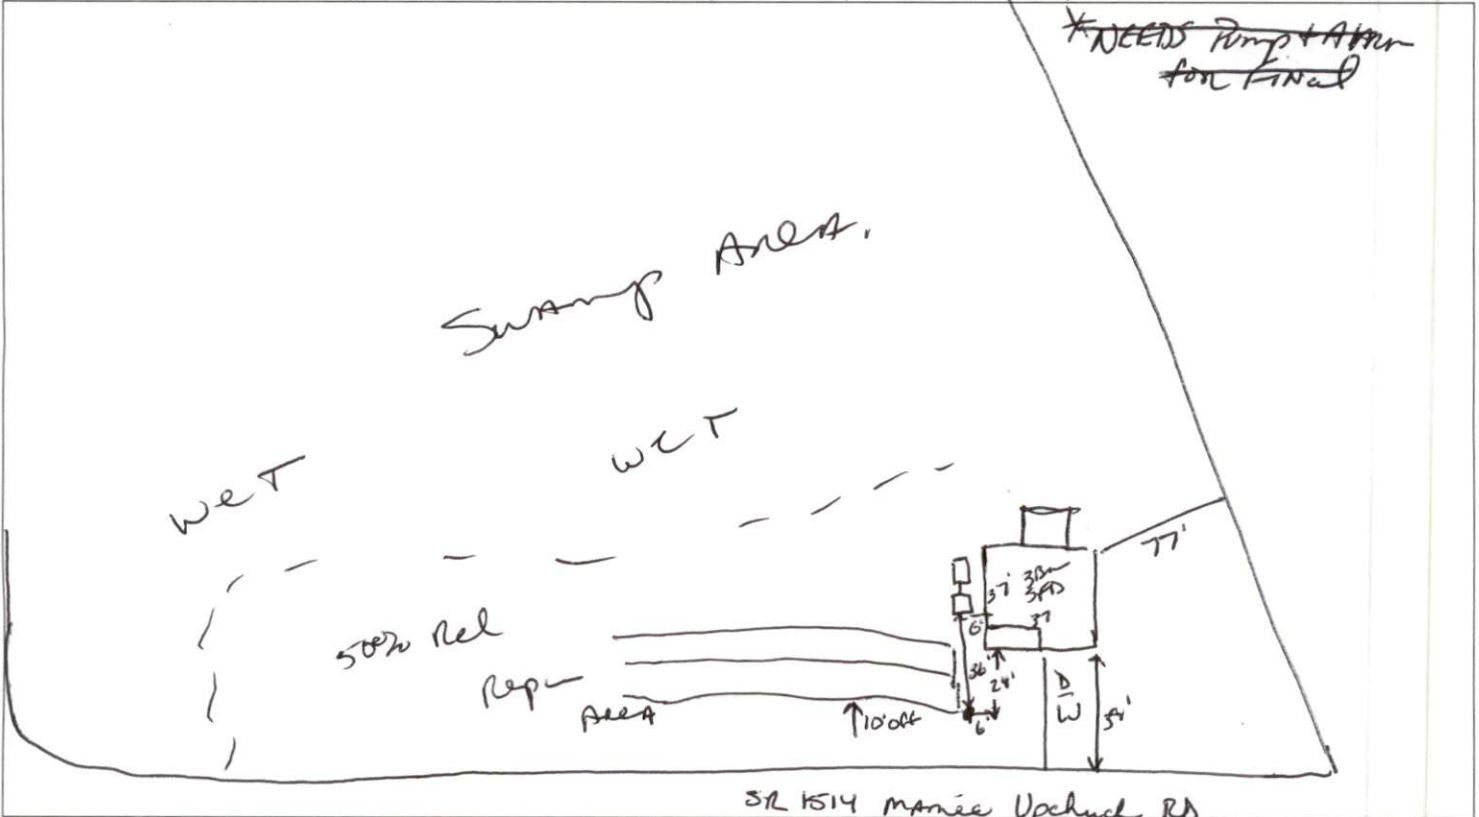 *NEEDS Pump + Alarm
for Final
Swamp Area.
wet
wet
77'
37'
3BR
37
6'
50% Red
Repair
Area
36'
24'
10' off
6'
D/W
SR 1514 Mamie Upchurch Rd